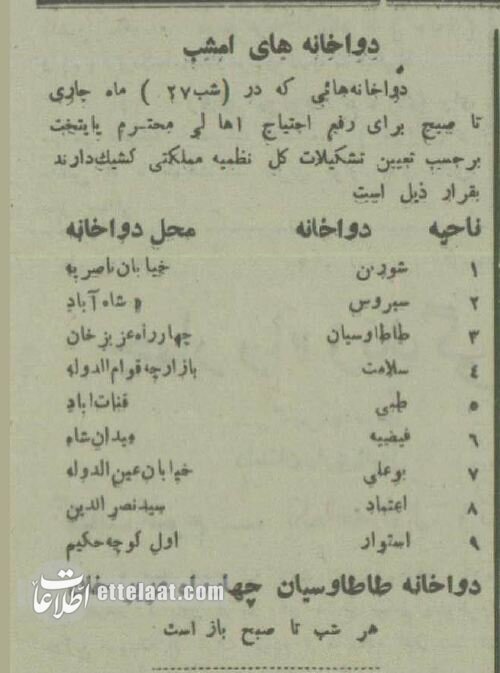 دواخانه های امشب
دواخانه‌هائی که در (شب ۲۷) ماه جاری
تا صبح برای رفع احتیاج اهالی محترم پایتخت
برحسب تعیین تشکیلات کل نظمیه مملکتی کشیک دارند
بقرار ذیل است
ناحیه دواخانه محل دواخانه
۱ شورین خیابان ناصریه
۲ سیروس شاه آباد
۳ طاطاوسیان چهارراه عزیز خان
۴ سلامت بازارچه قوام الدوله
۵ طبی قنات اباد
۶ فیضیه میدان شاه
۷ بوعلی خیابان عین الدوله
۸ اعتماد سید نصرالدین
۹ استوار اول کوچه حکیم
دواخانه طاطاوسیان
اطلاعات ettelaat.com
هر شب تا صبح باز است